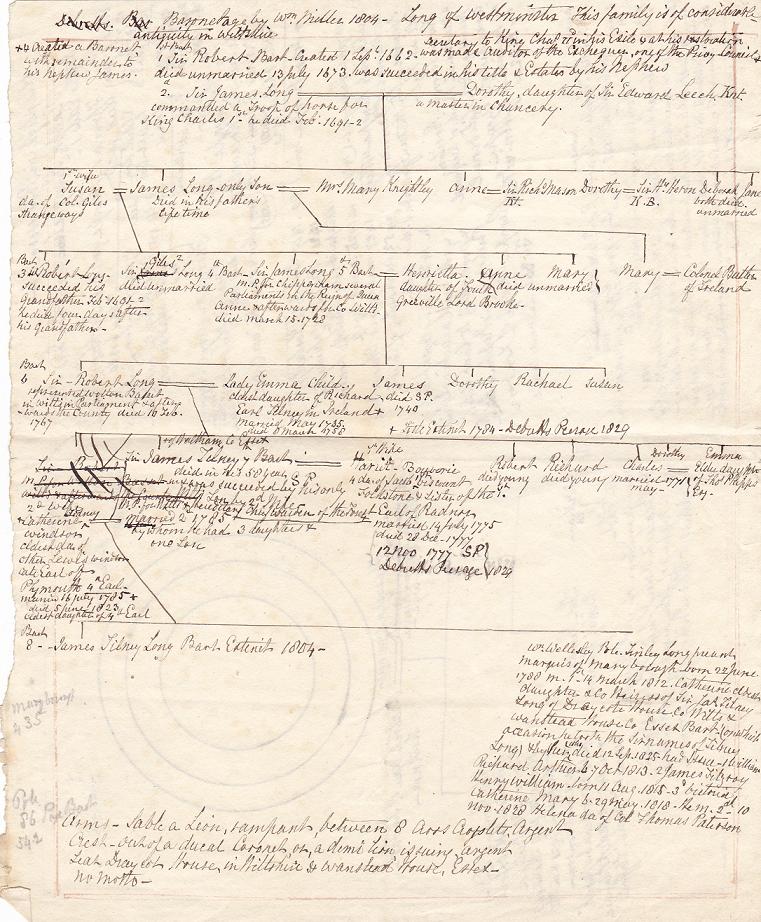 Baronetage by Wm Miller 1804 - Long of Westminster This family is of considerable
antiquity in Wiltshire
+ Created a Baronet
with remainder to
his Nephew James.
1st Bart
1 Sir Robert Bart - Created 1 Sept 1662 -
Secretary to King Chas 2d in his Exile & at his restoration
was made Auditor of the Exchequer, one of the Privy Council &
died unmarried 13 July 1673. was succeeded in his title & Estates by his Nephew
2. Sir James Long
commanded a Troop of horse for
King Charles 1st he died Feb. 1691-2
Dorothy, daughter of Sir Edward Leech, Knt.
a Master in Chancery.
1st wife
Susan
da. of Col. Giles
Strangways
James Long - only Son
Died in his father's
life time
Mrs Mary Knightley
Anne = Sir Richd Mason
Kt.
Dorothy = Sir Hy Heron
K.B.
Deborah Jane
both died
unmarried
Bart
3d Robert Long
succeeded his
Grandfather Feb 1691-2
he died four days after
his Grandfather -
Sir Giles Long 4th Bart
died unmarried
Sir James Long 5th Bart
M.P. for Chippenham several
Parliaments in the Reign of Queen
Anne & afterwards for Co Wilts.
died March 15 - 1728
Henrietta
daughter of Foulk
Greville Lord Brooke -
Anne Mary
died unmarried
Mary = Colonel Butler
of Ireland
Bart
6 Sir - Robert Long
represented Wotton Basset
in Wilts in Parliament & after-
wards the County died 10 Feb.
1767
Lady Emma Child.
eldest daughter of Richard
Earl Tilney in Ireland +
married May 1735.
died 8 March 1758
James
died SP.
1740
Dorothy Rachael Susan
+ Title Extinct 1784 - Debretts Peerage 1829
of Waltham, Co Essex
Sir James Tilney 7 Bart
died in his 58 year
by whom he had 3 daughters &
one Son
married 2 1785
1st Wife
Hariet - Bouverie
4 da. of Jacob Viscount
Folkstone & Sister of the 1st
Earl of Radnor
married 14 July 1775
died 28 Dec - 1777
12 Nov 1777 SP
Debretts Peerage 1829
Robert
died young
Richard
died young
Charles
married 1771
May -
Dorothy
Emma
2d wife
Catherine
Windsor
eldest da. of
other Lewis Windsor
late Earl of
Plymouth 4th Earl -
marrd 16 July 1785 +
died 5 June 1823
eldest daughter of 4th Earl
Bart
8 - James Tilney Long Bart Extinct 1804 -
Wm Wellesley Pole Tinley Long present
marquis of Maryborough born 22 June
1788 m. 1st 14 March 1812. Catherine eldest
daughter & Co Heiress of Sir Jas Tilney
Long of Draycote House Co Wilts &
Wanstead House Co Essex Bart (on which
occasion he took the Sirnames of Tilney
Long) & by her (who died 12 Sep. 1825 had Issue - 1 William
Richard Arthur b 7 Oct 1813. 2 James Fitzroy
Henry William born 11 Aug. 1815 - 3d Victoria
Catherine Mary b. 29 May. 1818 - He m. 2d 10
Nov. 1828 Helena da of Col Thomas Paterson
435
86
342
Arms - Sable a Lion, rampant, between 8 Cross Crosslets, Argent
Crest - out of a ducal Coronet or, a demi lion issuing, argent
Seat Draycot House, in Wiltshire & Wanstead House, Essex -
no Motto -